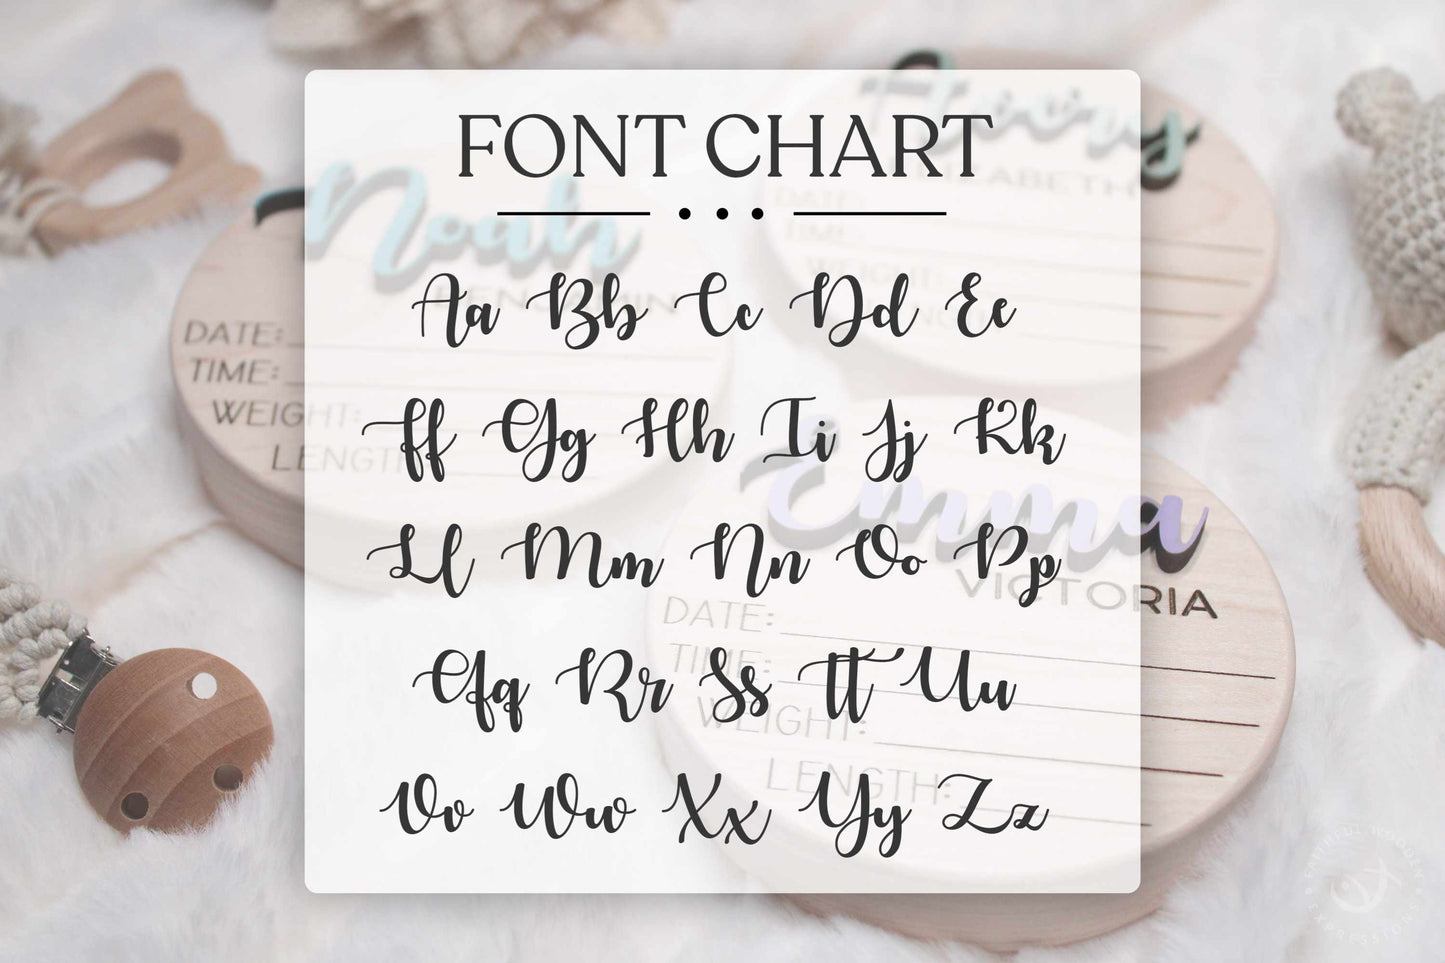 FONT CHART
Aa Bb Cc Dd Ee
Ff Gg Hh Ii Jj Kk
Ll Mm Nn Oo Pp
Qq Rr Ss Tt Uu
Vv Ww Xx Yy Zz
Noah
BENJAMIN
DATE:
TIME:
WEIGHT:
LENGTH:
ELIZABETH
DATE:
TIME:
WEIGHT:
LENGTH:
Emma
VICTORIA
DATE:
TIME:
WEIGHT:
LENGTH:
FAITHFUL WOODEN
EXPRESSIONS